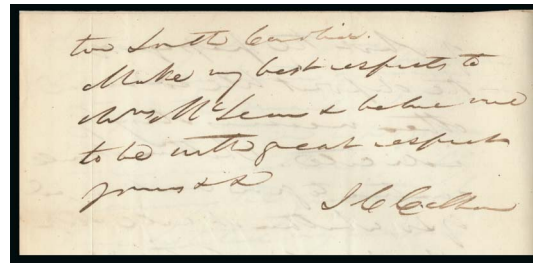 two South Carolina.
Make my best respects to
Mrs McLean & believe me
to be with great respect
yours &&
J C Calhoun